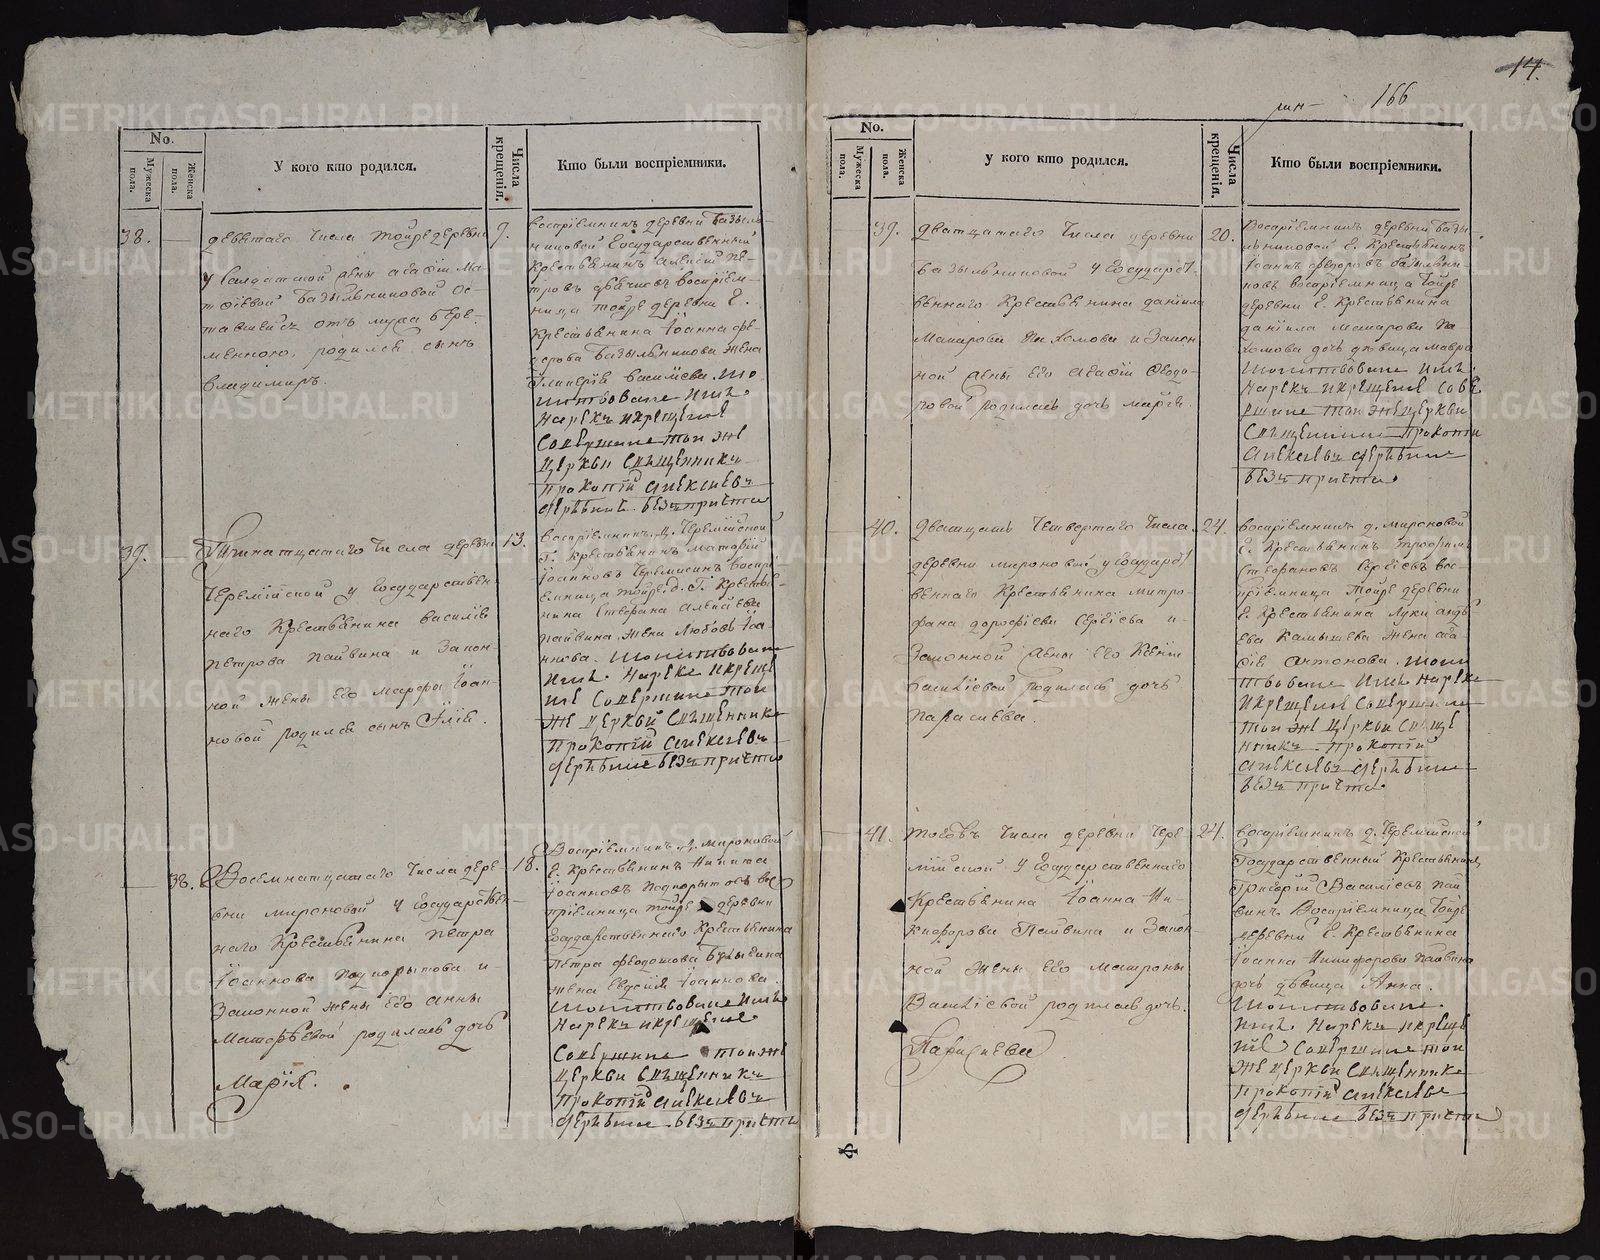 No.
Мужеска пола.
Женска пола.
У кого кто родился.
Числа крещенія.
Кто были воспріемники.
38.
девятаго числа тойже деревни
у салдатской жены Агафіи Ма-
тфіевой Базыльниковой ос-
тавшейся отъ мужа бере-
менною, родился сынъ
Владимиръ.
9.
воспріемникъ деревни Базыль-
никовой Государственный
крестьянинъ Алексій Пе-
тровъ воспріем-
ница тойже деревни Г.
крестьянина Іоанна Фе-
дорова Базыльникова жена
Гликерія Василіева. Мо
литвовале имя
нарекъ и крещеніе
совершиле тои же
церкви священникъ
Прокопій Алексіевъ
безъ причта
39.
Тринатцатаго числа деревни
Черемійской у Государствен
наго крестьянина Василія
Петрова Пайвина и закон-
ной жены его Марфы Іоан-
новой родился сынъ Илія.
13.
воспріемникъ д. Черемійской
Г. крестьянинъ Матфій
Іоанновъ Черемисинъ воспрі-
емница тойже д. Г. крестья-
нина Стефана Алексіева
Пайвина жена Любовь Іоа-
ннова. Молитвовале
имя нареке и креще
ніе совершиле тои
же церкви священнике
Прокопій Алексіевъ
безъ причта
38.
Восемнатцатаго числа дере-
вни Мироновой у Государствен-
наго крестьянина Петра
Іоаннова Подкорытова и
законной жены его Анны
Матфѣевой родилась дочь
Марія.
18.
Воспріемникъ д. Мироновой
Г. крестьянинъ Никита
Іоанновъ Подкорытовъ вос
пріемница тойже деревни
Государственнаго крестьянина
Петра Федотова
жена Евдокія Іоаннова.
Молитвовале имя
нарекъ и крещеніе
совершиле тои же
церкви священникъ
Прокопій Алексіевъ
безъ причта
14.
166
No.
Мужеска пола.
Женска пола.
у кого кто родился.
Числа крещенія.
Кто были воспріемники.
39.
Дватцатаго числа деревни
Базыльниковой у Государст-
веннаго крестьянина Даніила
Макарова Пахомова и закон
ной жены его Агафіи Федо-
ровой родилась дочь Марія.
20.
Воспріемникъ деревни Базы-
льниковой Г. крестьянинъ
Іоаннъ Федоровъ Базыльни-
ковъ воспріемница тойже
деревни Г. крестьянина
Даніила Макарова Па
хомова дочь дѣвица Мавра
Молитвовале имя
нарекъ и крещеніе сове
ршиле тои же церкви
священникъ Прокопій
Алексіевъ
безъ причта.
40.
Дватцать четвертаго числа
деревни Мироновой у Государст
веннаго крестьянина Митро-
фана Дорофіева Сергіева и
законной жены его Ксеніи
Василіевой родилась дочь
Параскева.
24.
воспріемникъ д. Мироновой
Г. крестьянинъ Трофимъ
Стефановъ Сергіевъ вос-
пріемница тойже деревни
Г. крестьянина Луки Авдѣ
ева Камышева жена Ага
фія Антонова. Моли
твовале имя нареке
и крещеніе совершиле
тои же церкви свяще
нникъ Прокопій
Алексіевъ
безъ причта.
41.
тогожъ числа деревни Чере
мійской у Государственнаго
крестьянина Іоанна Ни-
кифорова Пайвина и закон
ной жены его Матроны
Василіевой родилась дочь.
Параскева
24.
воспріемникъ д. Черемійской
Государственный крестьянинъ
Григорій Василіевъ Пай
винъ Воспріемница тойже
деревни Г. крестьянина
Іоанна Никифорова Пайвина
дочь дѣвица Анна.
Молитвовале
имя нарекъ и креще
ніе совершиле тои
же церкви священнике
Прокопій Алексіевъ
безъ причта
Ф